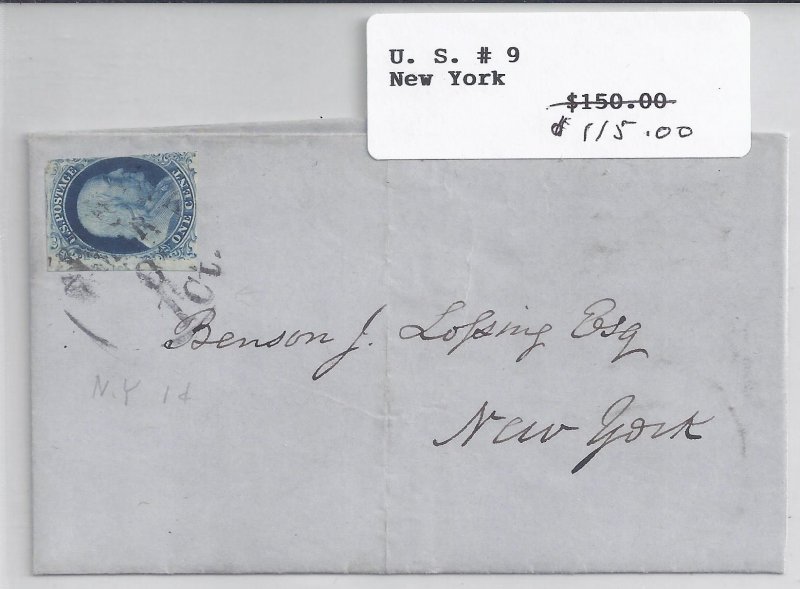 U. S. # 9
New York
$150.00
$ 115.00
U.S. POSTAGE
ONE CENT
1 ct.
Benson J. Lossing Esq
New York
N.Y 1¢